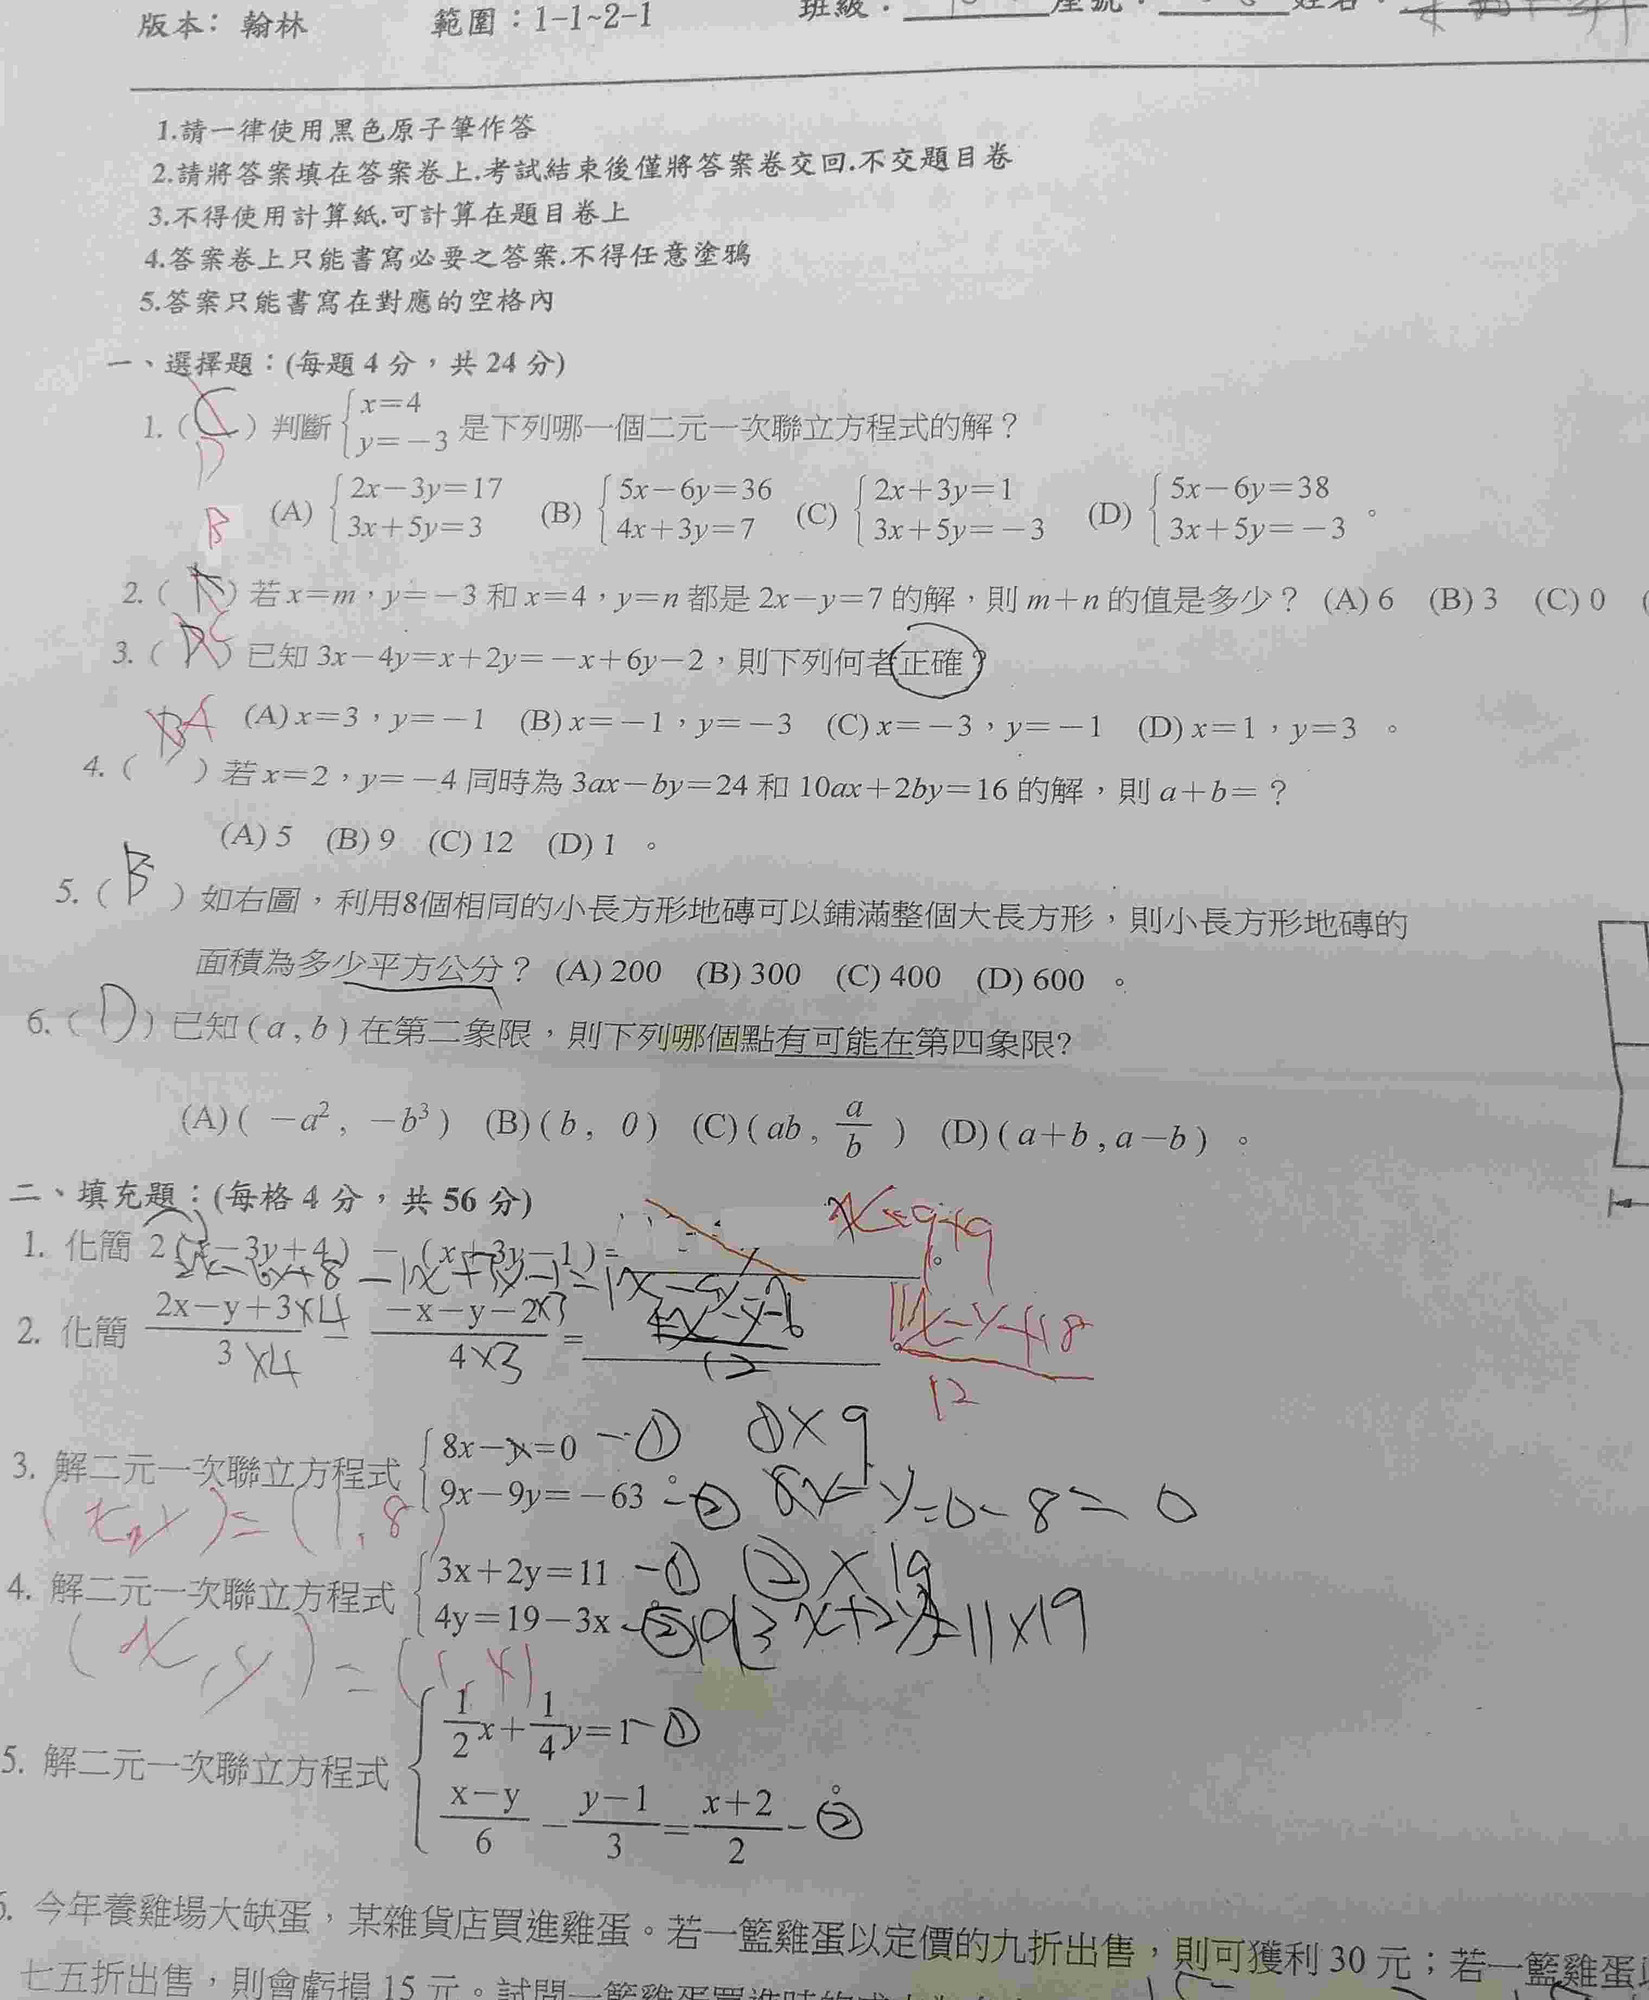 版本：翰林 範圍：1-1~2-1 班級： 座號：
1.請一律使用黑色原子筆作答
2.請將答案填在答案卷上.考試結束後僅將答案卷交回.不交題目卷
3.不得使用計算紙.可計算在題目卷上
4.答案卷上只能書寫必要之答案.不得任意塗鴉
5.答案只能書寫在對應的空格內
一、選擇題：(每題 4 分，共 24 分)
1. ( C ) 判斷 { x=4 y=-3 是下列哪一個二元一次聯立方程式的解？
D
(A) { 2x-3y=17 3x+5y=3 (B) { 5x-6y=36 4x+3y=7 (C) { 2x+3y=1 3x+5y=-3 (D) { 5x-6y=38 3x+5y=-3 。
B
2. ( ) 若 x=m，y=-3 和 x=4，y=n 都是 2x-y=7 的解，則 m+n 的值是多少？ (A) 6 (B) 3 (C) 0 (
3. ( ) 已知 3x-4y=x+2y=-x+6y-2，則下列何者正確？
(A) x=3，y=-1 (B) x=-1，y=-3 (C) x=-3，y=-1 (D) x=1，y=3 。
4. ( ) 若 x=2，y=-4 同時為 3ax-by=24 和 10ax+2by=16 的解，則 a+b=？
(A) 5 (B) 9 (C) 12 (D) 1 。
5. ( B ) 如右圖，利用8個相同的小長方形地磚可以鋪滿整個大長方形，則小長方形地磚的
面積為多少平方公分？ (A) 200 (B) 300 (C) 400 (D) 600 。
6. ( D ) 已知 ( a , b ) 在第二象限，則下列哪個點有可能在第四象限?
(A) ( -a², -b³ ) (B) ( b, 0 ) (C) ( ab, a/b ) (D) ( a+b , a-b ) 。
二、填充題：(每格 4 分，共 56 分)
1. 化簡 2 (x-3y+4) - (x+3y-1) = 。
x-9y+9
2. 化簡 2x-y+3×4 / 3×4 - -x-y-2×3 / 4×3 = 。
11x-y+18 / 12
3. 解二元一次聯立方程式 { 8x-y=0 -① 9x-9y=-63 -② 。
①×9
8x-y=0-8=0
(x,y)=(1,8)
4. 解二元一次聯立方程式 { 3x+2y=11 -① 4y=19-3x -② 。
②×19
19(3x+2y)=11×19
(x,y)=(1,4)
5. 解二元一次聯立方程式 { 1/2 x+1/4 y=1 -① x-y/6 - y-1/3 = x+2/2 -② 。
6. 今年養雞場大缺蛋，某雜貨店買進雞蛋。若一籃雞蛋以定價的九折出售，則可獲利 30 元；若一籃雞蛋
七五折出售，則會虧損 15 元。試問一籃雞蛋買進時的成本